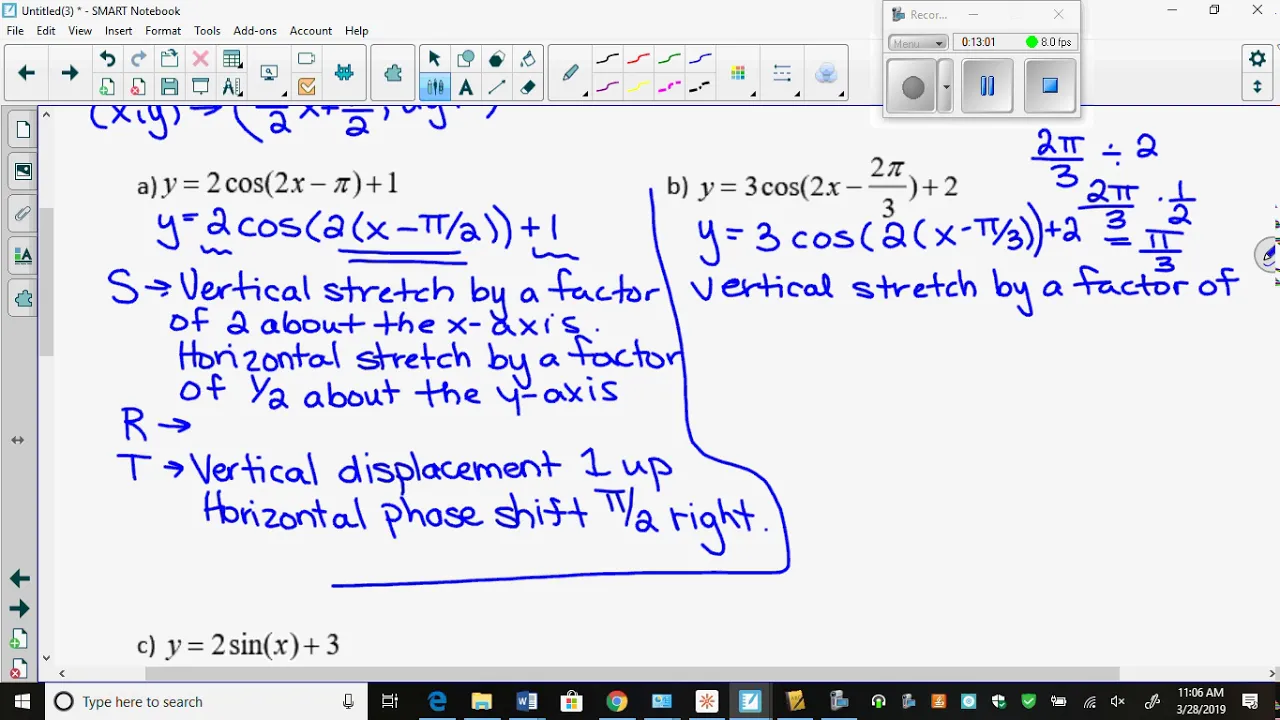 Untitled(3) * - SMART Notebook
File Edit View Insert Format Tools Add-ons Account Help
Recor...
Menu
0:13:01
8.0 fps
a) y = 2 cos(2x − π) + 1
y = 2 cos(2(x − π/2)) + 1
S → Vertical stretch by a factor
of 2 about the x-axis.
Horizontal stretch by a factor
of 1/2 about the y-axis
R →
T → Vertical displacement 1 up
Horizontal phase shift π/2 right.
b) y = 3 cos(2x − 2π/3) + 2
2π/3 ÷ 2
2π/3 · 1/2
= π/3
y = 3 cos(2(x − π/3)) + 2
Vertical stretch by a factor of
c) y = 2 sin(x) + 3
Type here to search
11:06 AM
3/28/2019